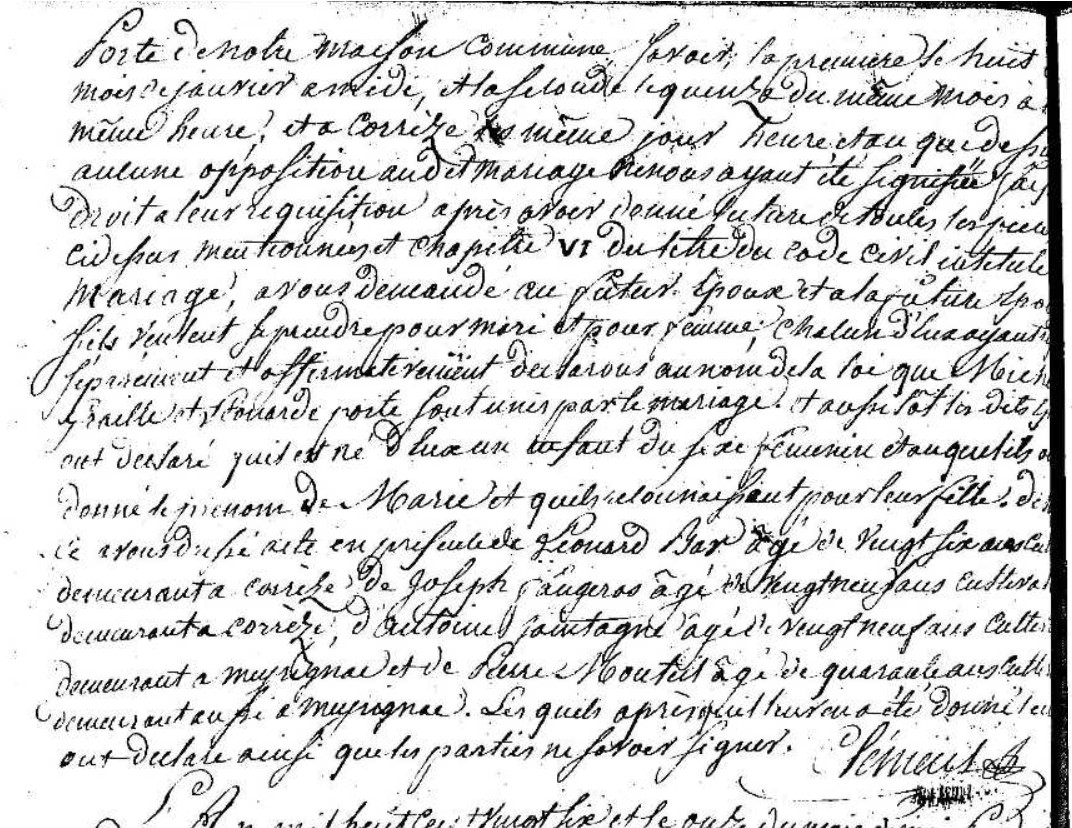 Porte de notre maison Commune, savoir, la premiere le huit
mois de janvier a midi, et la seconde le quinze du même mois a
même heure, et a Corrèze les même jour heure et an que dessus
aucune opposition audit mariage ne nous ayant été signifiée
droit a leur requisition après avoir donné lecture de toutes les
ci dessus mentionnées et chapitre VI du titre du code civil intitulé
Mariage, avons demandé au futur Epoux et a la future
s'ils veulent se prendre pour mari et pour femme, chacun d'eux ayant
séparément et affirmativement declarons au nom de la loi que
et Léonarde porte sont unis par le mariage. et aussitôt les dits
ont declaré qu'il est né d'eux un enfant du sexe féminin et auquel ils
donné le prénom de Marie et qu'ils reconnaissent pour leur fille. de
ce avons dressé acte en présence de Léonard agé de vingt six ans
demeurant a corrèze de Joseph agé de vingt neuf ans
demeurant a Corrèze, d'antoine agé de vingt neuf ans
demeurant a meyrignac et de Pierre Monteil âgé de quarante ans
demeurant aussi a meyrignac. Les quels après qu'il leur en a été donné
ont declaré ainsi que les parties ne savoir signer.
mil huit cent vingt six et le onze du mois